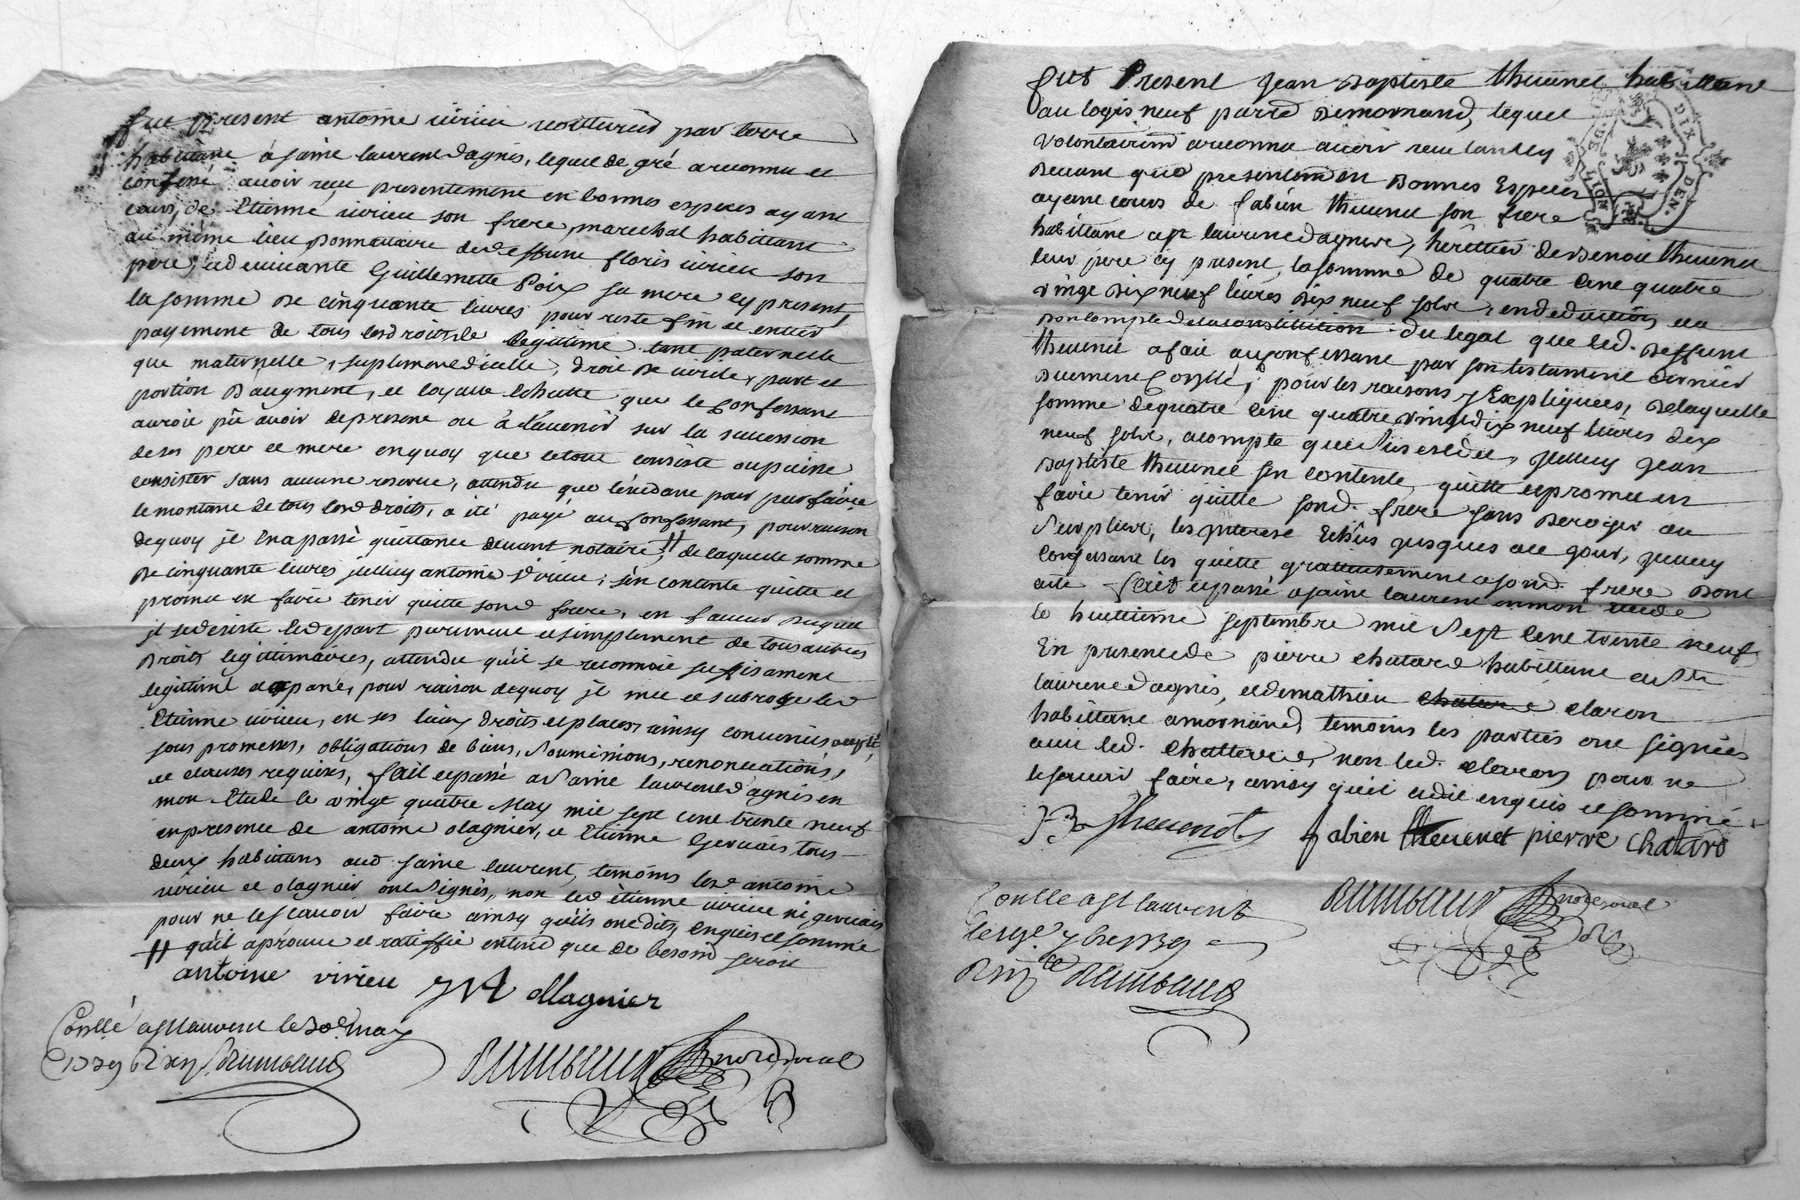 fut present antoine virieu voiturier par terre
habittant à saint laurent dagnis, lequel de gré a reconnu et
confessé avoir reçu presentement en bonnes especes ayant
cours, de Etienne virieu son frere, marechal habittant
au même lieu donnattaire de deffunt floris virieu son
pere, et de vivante Guillemette Poix sa mere cy present,
la somme de cinquante livres pour reste fin et entier
payement de tous les droits de legitime tant paternelle
que maternelle, suplement d'icelle, droit de virile, part et
portion d'augment, et loyalle echutte que le confessant
auroit pû avoir de present ou à l'avenir sur la succession
de ses pere et mere en quoy que le tout consiste ou puisse
consister sans aucune reserve, attendu que l'exedant pour parfaire
le montant de tous les d. droits, a été payé au confessant, pour raison
de quoy il en a passé quittance devant notaire, // de laquelle somme
de cinquante livres jcelluy antoine virieu, s'en contente quitte et
promet en faire tenir quitte son d. frere, en faveur duquel
il se desiste et depart purement et simplement de tous autres
droits legitimaires, attendu qu'il se reconnoit suffisament
legitimé et apané, pour raison de quoy il met et subroge led.
Etienne virieu, en ses lieu, droits et places, ainsy convenu, accepté,
sous promesses, obligations de biens, soumissions, renonciations,
et clauses requises, fait et passé a saint laurent d'agnis en
mon Etude le vingt quatre May mil sept cent trente neuf
en presence de antoine olagnier, et Etienne Gervais tous
deux habittans aud. saint laurent, temoins les d. antoine
virieu et olagnier ont signés, non led. étienne virieu ni gervais
pour ne le scavoir faire ainsy qu'ils ont dit, enquis et sommé
// qu'il aprouve et ratiffie entant que de besoin seroit
antoine virieu ollagnier
Conllé a St laurent le 30e may
1739
fut Present Jean Baptiste thevenet habittant
au logis neuf parr. de mornand, lequel
volontairement a reconnu avoir reçu tant cy
devant que presentement en Bonnes Especes
ayant cours de fabien thevenet son frere
habittant a St laurent d'agnis, héritier de Benoit thevenet
leur pere cy present, la somme de quatre cent quatre
vingt dix neuf livres dix neuf sols, en deduction et a
bon compte de la constitution du legat que led. deffunt
thevenet a fait au confessant par son testament dernier
duement Conllé, pour les raisons y Expliquées, de laquelle
somme de quatre cent quatre vingt dix neuf livres dix
neuf sols, a compte que dessus est dit, jcelluy Jean
Baptiste thevenet s'en contente, quitte et promet en
faire tenir quitte son d. frere sans deroger au
surplus, les jnterest Echûs jusques a ce jour, jcelluy
confessant les quitte gratuitement a son d. frere dont
acte fait et passé a saint laurent en mon etude
le huittieme septembre mil sept cent trente neuf
En presence de pierre chatard habittant au dit
laurent d'agnis, et de mathieu claron
habittant a mornand, temoins les parties ont signées
avec led. chattard, non led. claron pour ne
le scavoir faire, ainsy qu'il a dit enquis et sommé.
JB thevenet fabien thevenet pierre chatard
Conllé a St laurent
7bre 1739